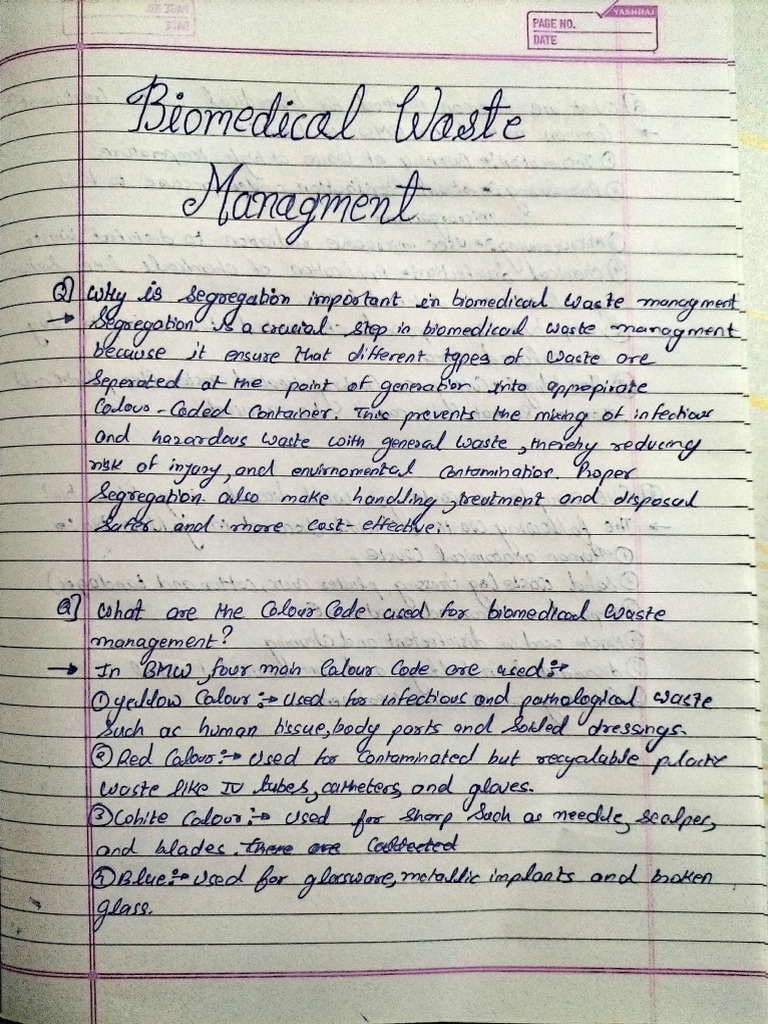 YASHRAJ
PAGE NO.
DATE
Biomedical Waste
Managment
Q] Why is segregation important in biomedical waste managment
→ Segregation is a crucial step in biomedical waste managment
because it ensure that different types of waste are
seperated at the point of generation into appropirate
Colour-Coded Container. This prevents the mixing of infectious
and hazardous waste with general waste, thereby reducing
risk of injury, and envirnomental contamination. Proper
Segregation also make handling, treatment and disposal
safer and more cost-effective.
Q] What are the Colour Code used for biomedical waste
management?
→ In BMW, four main Colour Code are used :→
① Yellow Colour :→ Used for infectious and pathological waste
Such as human tissue, body parts and Soiled dressings.
② Red Colour :→ Used for Contaminated but recyalable plastic
waste like IV tubes, catheters, and gloves.
③ White Colour :→ Used for sharp Such as needle, scalpes,
and blades. there are Collected
④ Blue :→ Used for glassware, metallic implants and broken
glass.